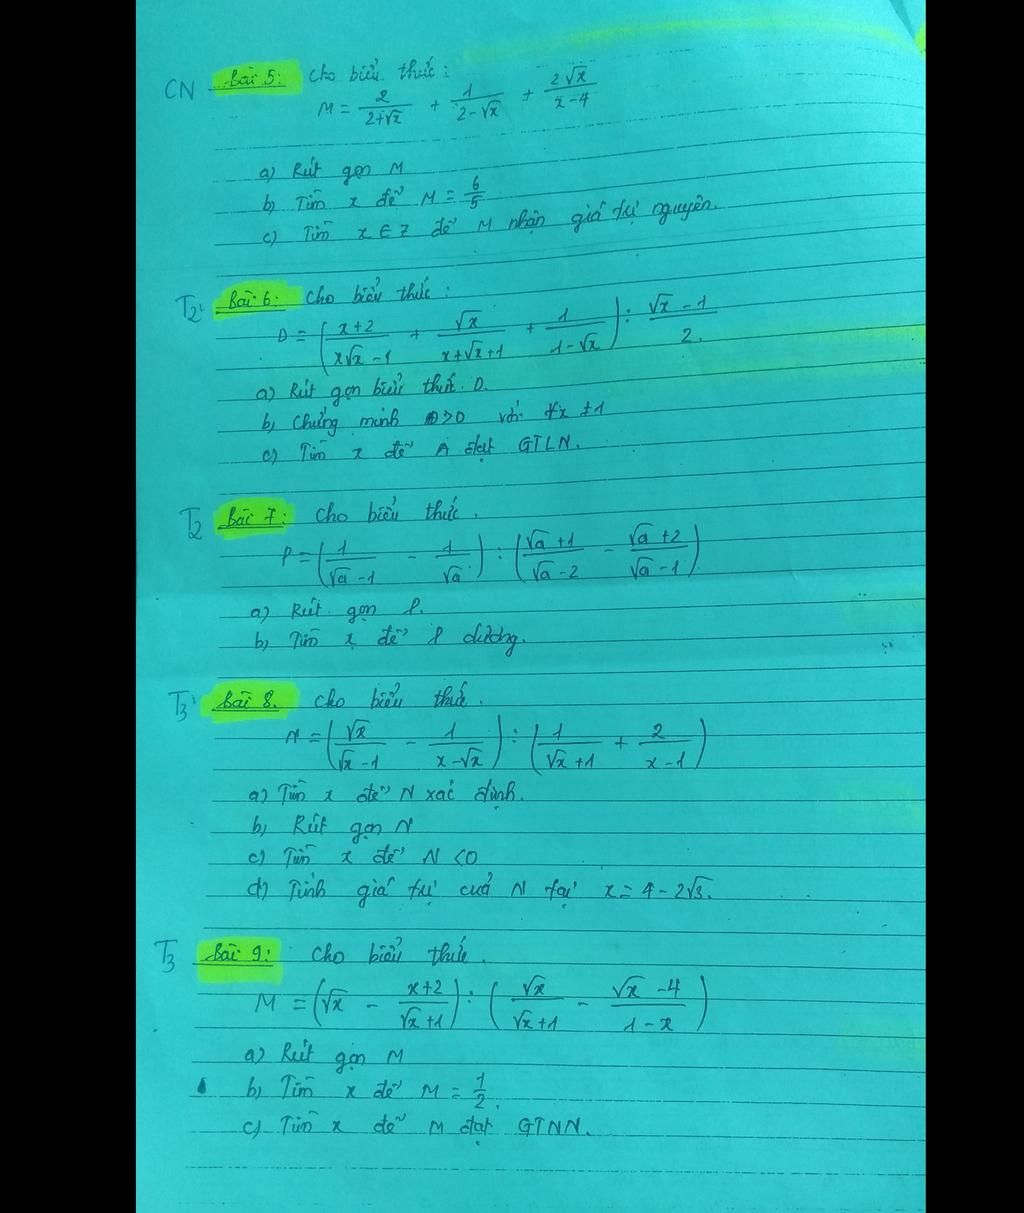 CN Bài 5: Cho biểu thức:
M = 2/(2+√x) + 1/(2-√x) + 2√x/(x-4)
a) Rút gọn M
b) Tìm x để M = 6/5
c) Tìm x ∈ Z để M nhận giá trị nguyên.
T2 Bài 6: Cho biểu thức:
D = ((x+2)/(x√x-1) + √x/(x+√x+1) + 1/(1-√x)) : (√x-1)/2.
a) Rút gọn biểu thức D.
b) Chứng minh D>0 với ∀x ≠1
c) Tìm x để A đạt GTLN.
T2 Bài 7: Cho biểu thức.
P = (1/(√a-1) - 1/√a) : ((√a+1)/(√a-2) - (√a+2)/(√a-1))
a) Rút gọn P.
b) Tìm x để P dương.
T3 Bài 8. Cho biểu thức.
N = (√x/(√x-1) - 1/(x-√x)) : (1/(√x+1) + 2/(x-1))
a) Tìm x để N xác định.
b) Rút gọn N
c) Tìm x để N <0
d) Tính giá trị của N tại x = 4-2√3.
T3 Bài 9: Cho biểu thức.
M = (√x - (x+2)/(√x+1)) : (√x/(√x+1) - (√x-4)/(1-x))
a) Rút gọn M
b) Tìm x để M = 1/2.
c) Tìm x để M đạt GTNN.